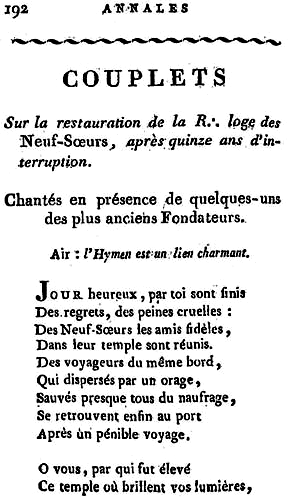 192 ANNALES
COUPLETS
Sur la restauration de la R∴ loge des
Neuf-Sœurs, après quinze ans d'in-
terruption.
Chantés en présence de quelques-uns
des plus anciens Fondateurs.
Air : l'Hymen est un lien charmant.
JOUR heureux, par toi sont finis
Des regrets, des peines cruelles :
Des Neuf-Sœurs les amis fidèles,
Dans leur temple sont réunis.
Des voyageurs du même bord,
Qui dispersés par un orage,
Sauvés presque tous du naufrage,
Se retrouvent enfin au port
Après un pénible voyage.
O vous, par qui fut élevé
Ce temple où brillent vos lumières,